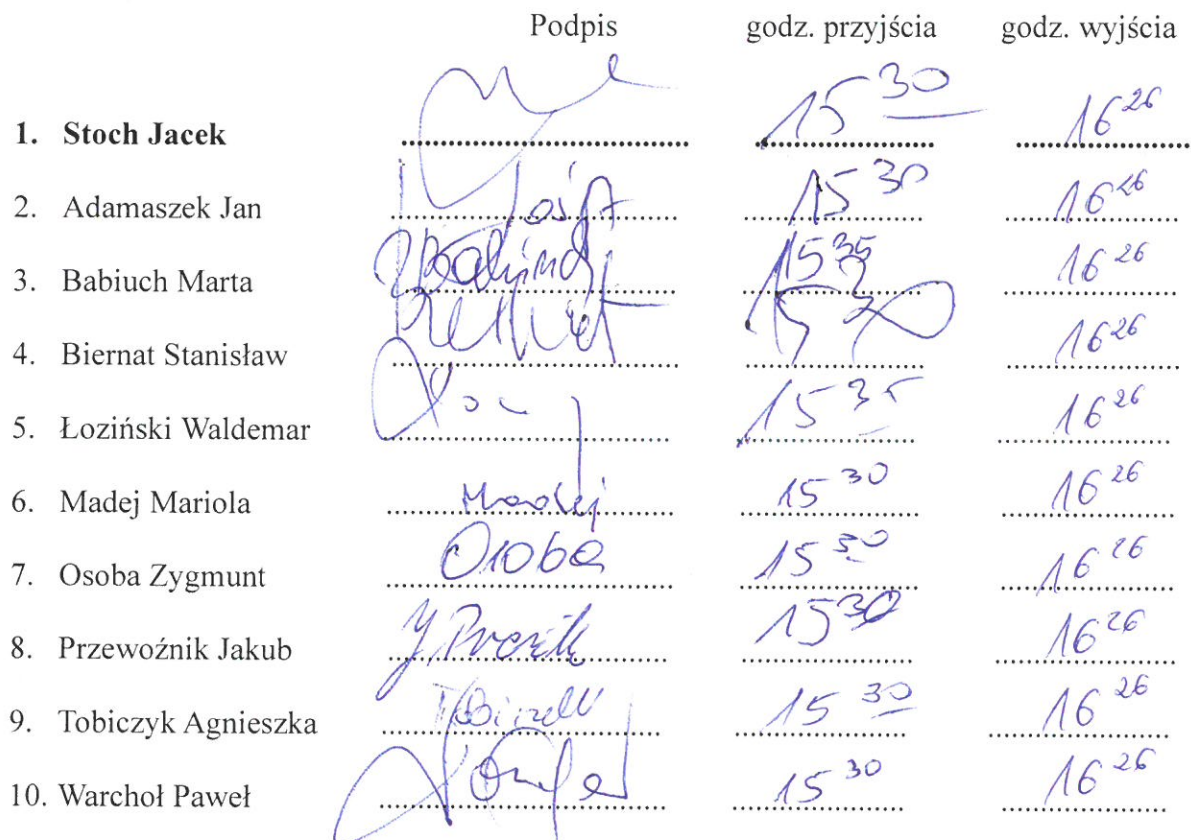 Podpis godz. przyjścia godz. wyjścia
1. Stoch Jacek 15 30 16 26
2. Adamaszek Jan 15 30 16 26
3. Babiuch Marta 15 35 16 26
4. Biernat Stanisław 15 30 16 26
5. Łoziński Waldemar 15 35 16 26
6. Madej Mariola Madej 15 30 16 26
7. Osoba Zygmunt Osoba 15 30 16 26
8. Przewoźnik Jakub 15 30 16 26
9. Tobiczyk Agnieszka 15 30 16 26
10. Warchoł Paweł 15 30 16 26